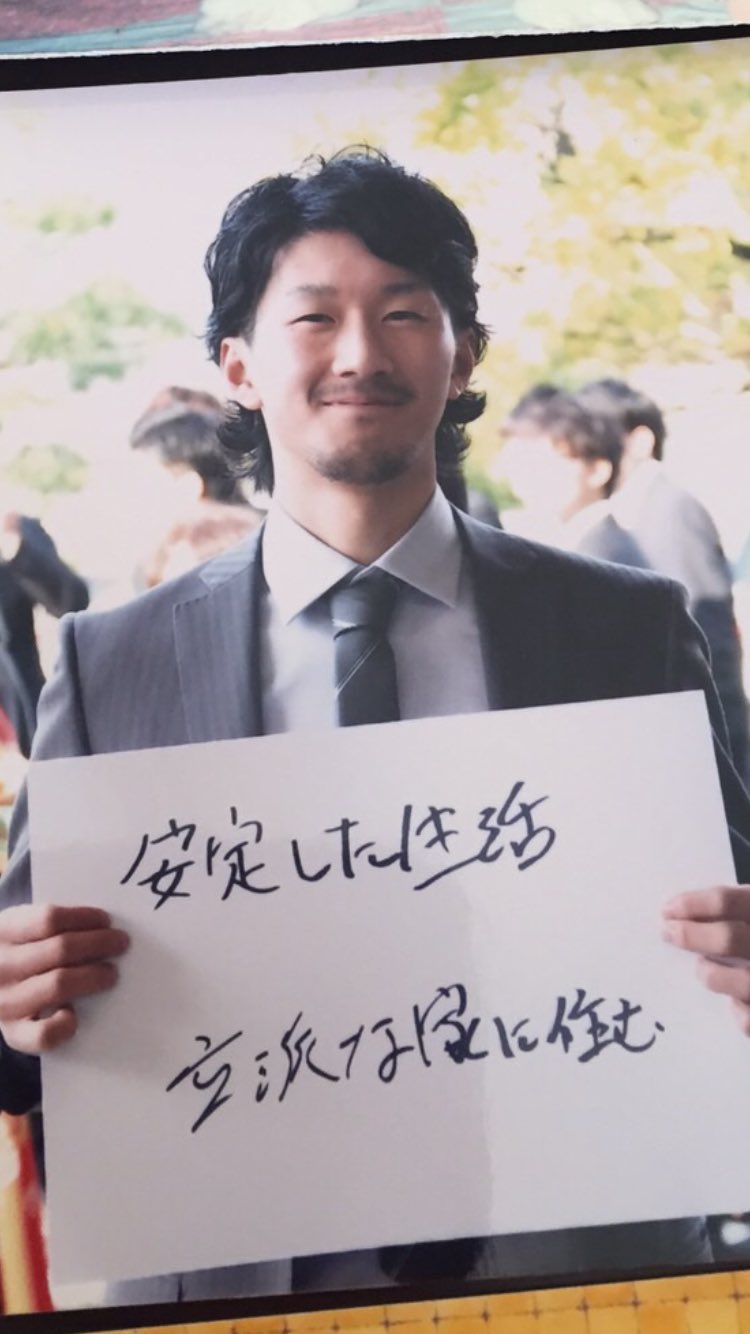 安定した生活
立派な家に住む。